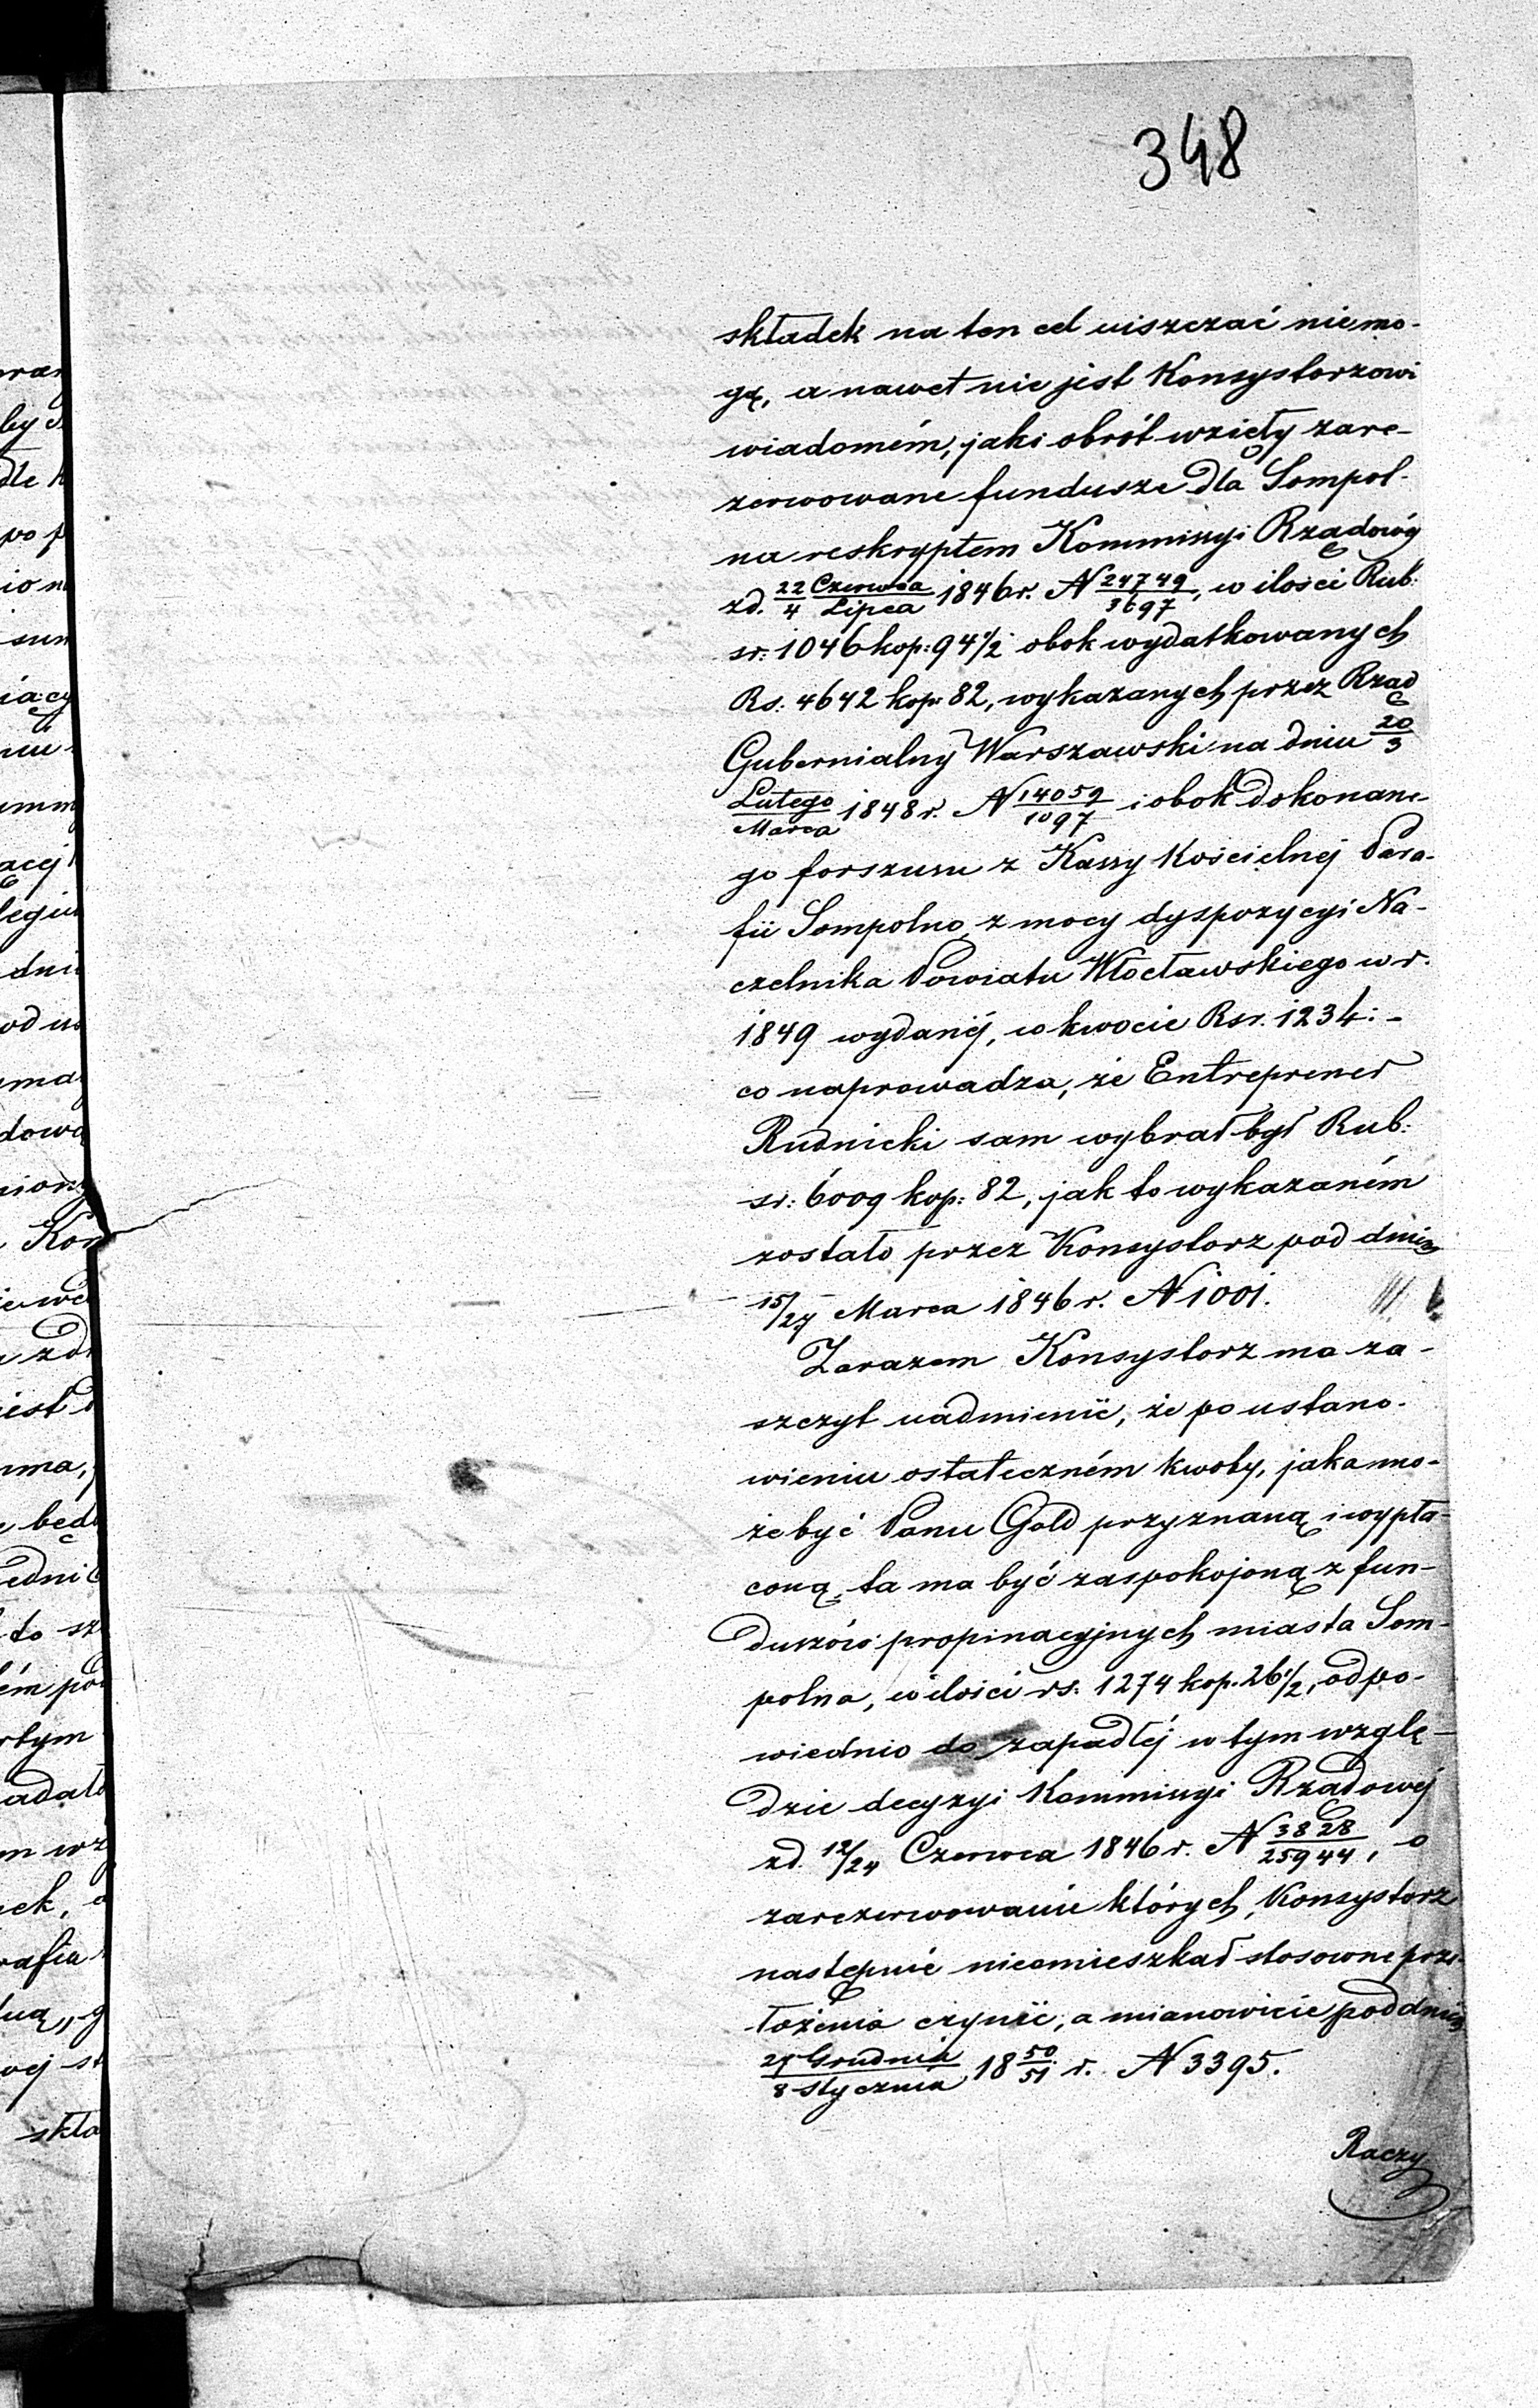 348
składek na ten cel uiszczać niemo-
gą, a nawet nie jest Konsystorzowi
wiadomém, jaki obrót wzięły zare-
zerwowane fundusze dla Sompol-
na reskryptem Kommissyi Rządowéj
zd. 22/4 Czerwca/Lipca 1846 r. N 24749/3697, w ilości Rub:
sr: 1046 kop: 94 1/2 obok wydatkowanych
Rs. 4642 kop: 82, wykazanych przez Rząd
Gubernialny Warszawski na dniu 20/3
Lutego/Marca 1848 r. N 14059/1097 i obok dokonane-
go forszusu z Kassy Kościelnéj Para-
fii Sompolno, z mocy dyspozycyi Na-
czelnika Powiatu Włocławskiego w r.
1849 wydanéj, w kwocie Rsr. 1234: -
co naprowadza, że Entreprener
Rudnicki sam wybrał był Rub:
sr: 6009 kop: 82, jak to wykazaném
zostało przez Konsystorz pod dniem
15/27 Marca 1846 r. N 1001.
Zarazem Konsystorz ma za-
szczyt nadmienić, że po ustano-
wieniu ostateczném kwoty, jaka mo-
że być Panu Gold przyznaną i wypła-
coną, ta ma być zaspokojoną z fun-
duszów propinacyjnych miasta Som-
polna, w ilości rs: 1274 kop. 26 1/2, odpo-
wiednio do zapadłéj w tym wzglę-
dzie decyzyi Kommissyi Rządowéj
zd. 12/24 Czerwca 1846 r. N 3828/25944, o
zarezerwowanie których, Konsystorz
następnie nieomieszkał stosowne prze-
łożenia czynić, a mianowicie pod dniem
27 Grudnia/8 Stycznia 18 50/51 r. N 3395.
Raczy